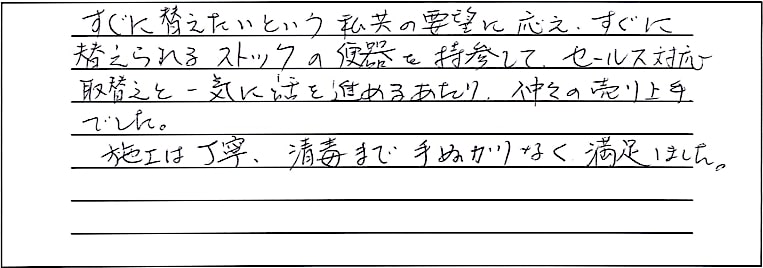 すぐに替えたいという私共の要望に応え、すぐに
替えられるストックの便器を持参して、セールス対応
取替えと一気に話を進めるあたり、仲々の売り上手
でした。
施工は丁寧、消毒まで手ぬかりなく満足しました。